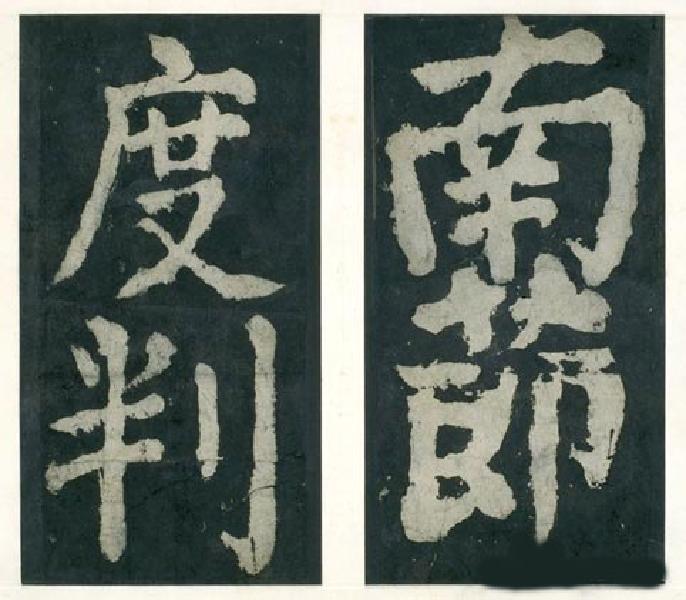 南節
度判